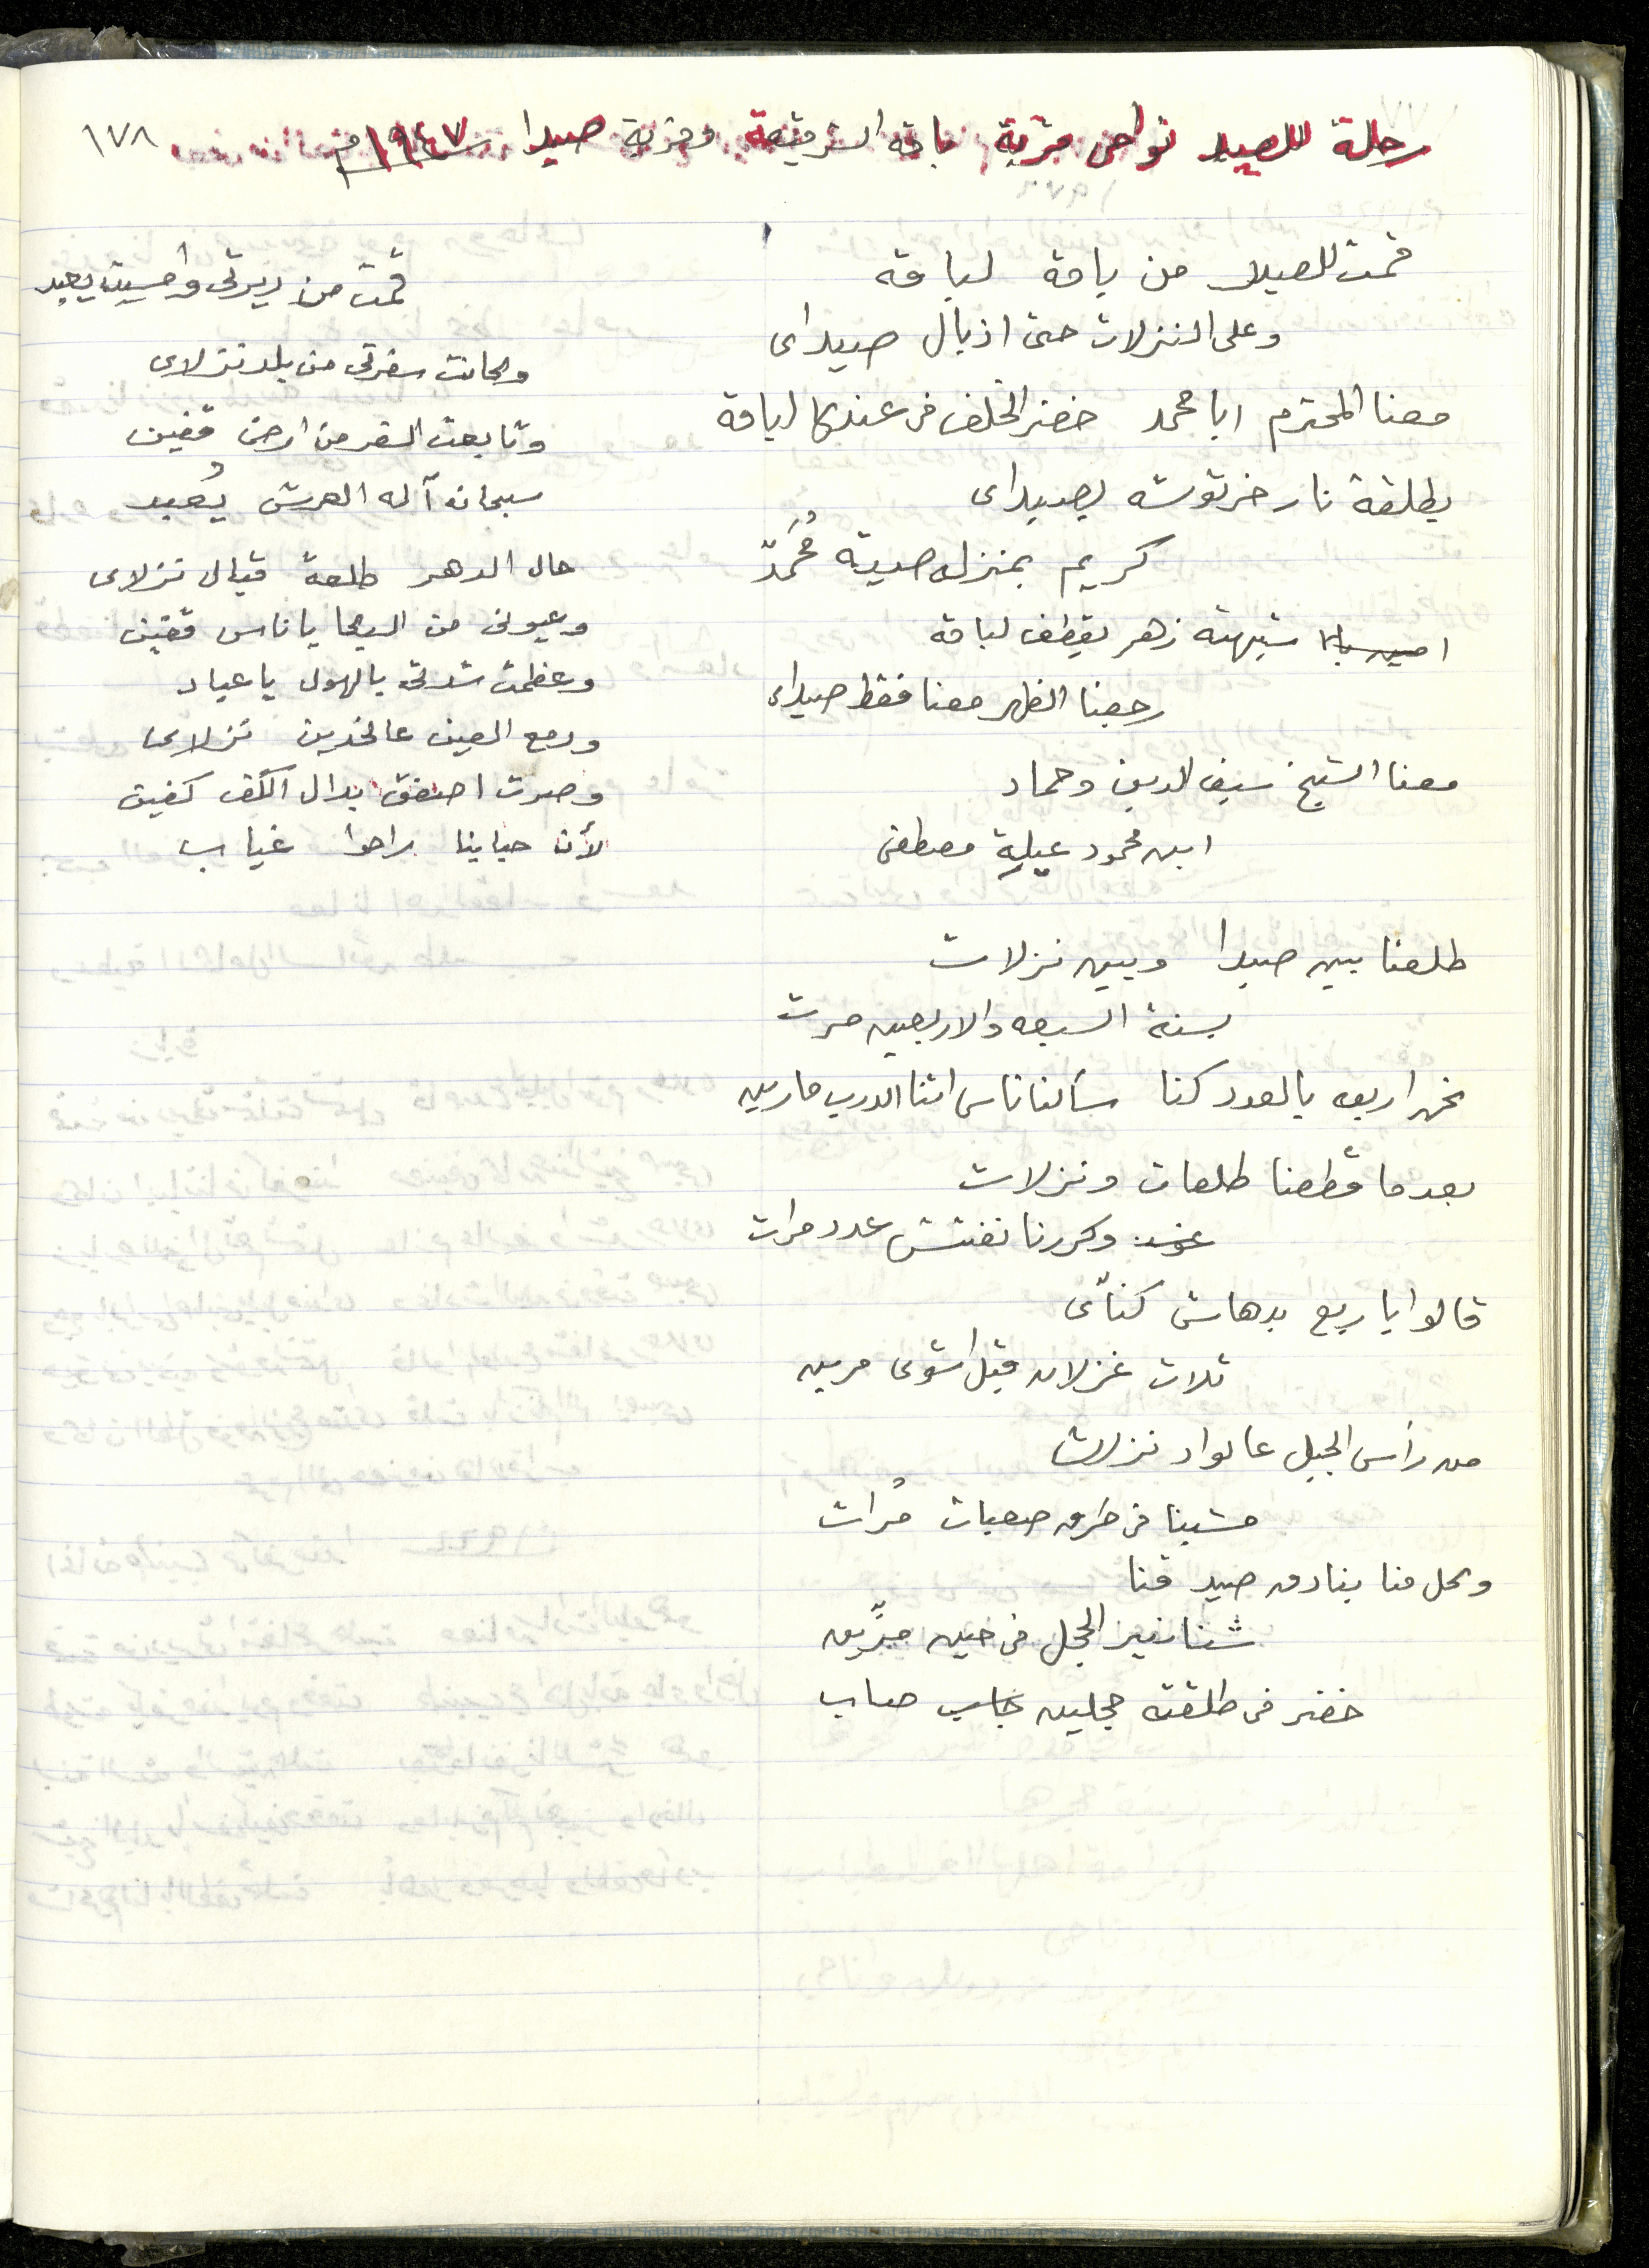 ١٧٨
رحلة للصيد نواحي قرية باقة الشرقية وقرية صيدا سنة ١٩٤٧م
قمت للصيد من باقة لباقة
وعلى النزلات حتى اذيال صيداى
معنا المحترم ابا محمد خضر الخلف في عندها لياقة
بطلقة نار خرتوشه يصيداى
كريم بمنزله صيته مُحَمَدّ
شبهته زهر يقطف لباقة
رجعنا الظهر معنا فقط صيداى
معنا الشيخ سيف الدين وحماد
ابن محمود عيلة مصطفى
طلعنا بين صيدا وبين نزلات
بسنة السبعه والاربعين مرت
نحن اربعه بالعدد كنا سألنا ناس اثنا الدرب مارين
بعدما قطعنا طلعات ونزلات
وكررنا نفتش عدد مرات
قالوا يا ربع بدهاش كنّاى
ثلاث غزلان قبل اشوى مرين
من رأس الجبل عالواد نزلات
مشينا في طرق صعبات مُرات
وكل منا بنادق صيد قنا
شنانير الحجل في حين مرّين
خضر في طلقته حجلين جاب صاب
قمت من ديرتي وامسيت بعيد
وكانت سفرتي من بلد نزلاى
وتابعت السفر من ارض قفين
سبحانه آله العرش يُعبد
حال الدهر طلعة قبال نزلاى
وعيوني من البكا يا ناس قفين
وعظمت شدتي بالهول يا عياد
ودمع العين عالخدين نزلاى
وصرت اصفق بدال الكف كفين
لأن حبابنا راحوا غياب